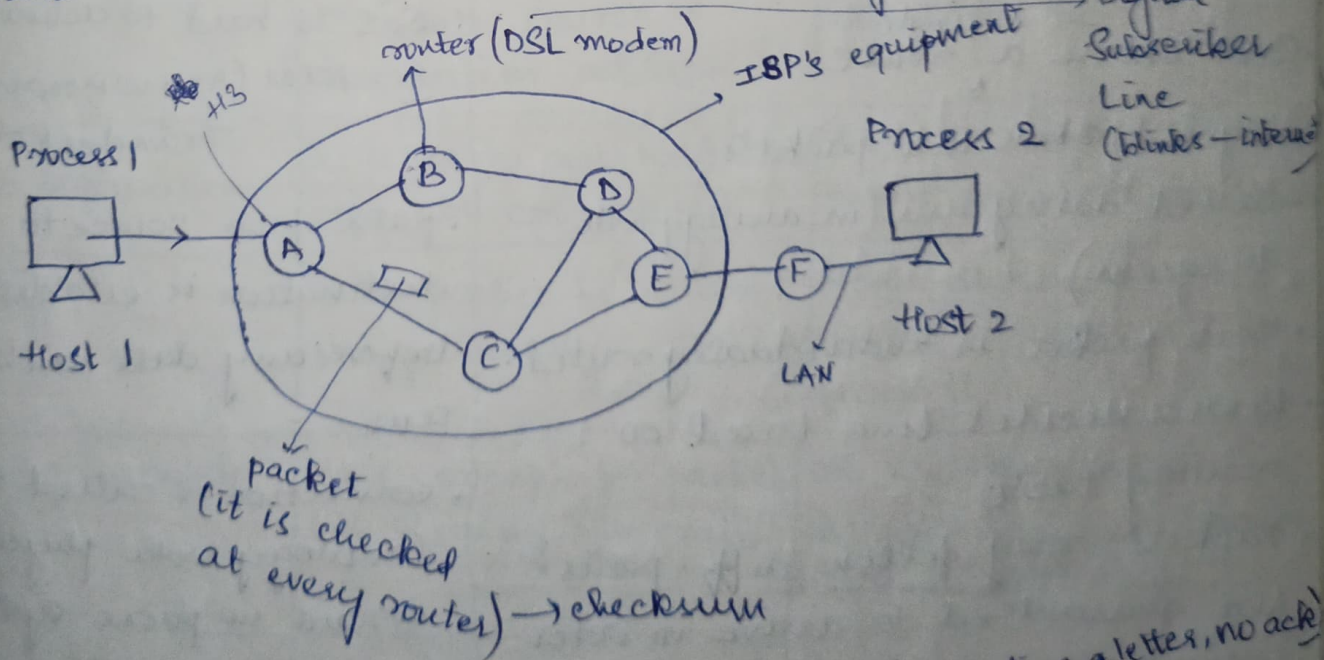 router (DSL modem)
ISP's equipment
Subscriber
Line
(blinks - interne
H3
Process 1
Process 2
B
D
A
E
F
C
Host 1
Host 2
LAN
packet
(it is checked
at every router) → checksum
a letter, no ack)